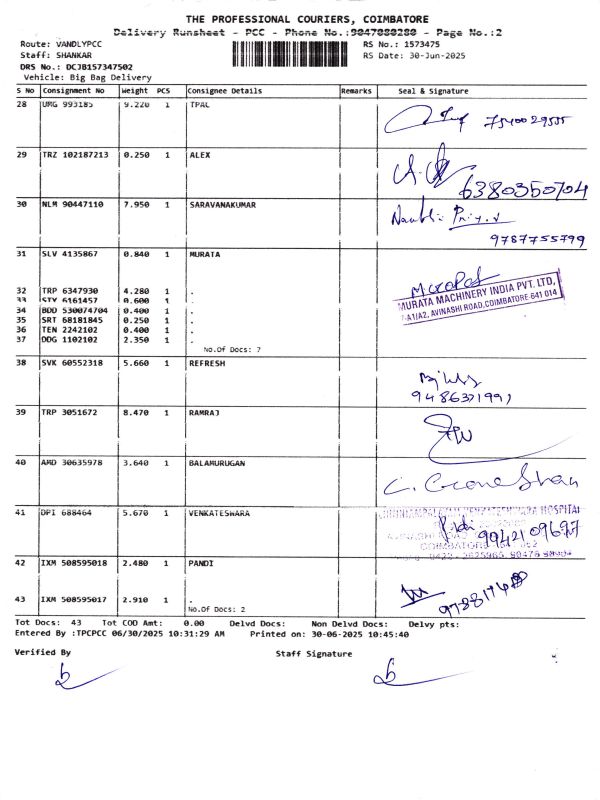 THE PROFESSIONAL COURIERS, COIMBATORE
Delivery Runsheet - PCC - Phone No.:9047080280 - Page No.:2
Route: VANDLYPCC
RS No.: 1573475
Staff: SHANKAR
RS Date: 30-Jun-2025
DRS No.: DCJB157347502
Vehicle: Big Bag Delivery
S No Consignment No Weight PCS Consignee Details Remarks Seal & Signature
28 UMG 993185 9.220 1 TPAL
7540029555
29 TRZ 102187213 0.250 1 ALEX
6380350704
30 NLM 90447110 7.950 1 SARAVANAKUMAR
9787755799
31 SLV 4135867 0.840 1 MURATA
MURATA MACHINERY INDIA PVT. LTD,
AVINASHI ROAD, COIMBATORE-641 014
32 TRP 6347930 4.280 1 .
33 STY 6161457 0.600 1 .
34 BDD 530074704 0.400 1 .
35 SRT 68181845 0.250 1 .
36 TEN 2242102 0.400 1 .
37 DDG 1102102 2.350 1 .
No.Of Docs: 7
38 SVK 60552318 5.660 1 REFRESH
9486371991
39 TRP 3051672 8.470 1 RAMRAJ
40 AMD 30635978 3.640 1 BALAMURUGAN
41 DPI 688464 5.670 1 VENKATESWARA
HOSPITAL
9942109697
42 IXM 508595018 2.480 1 PANDI
43 IXM 508595017 2.910 1 .
No.Of Docs: 2
Tot Docs: 43 Tot COD Amt: 0.00 Delvd Docs: Non Delvd Docs: Delvy pts:
Entered By :TPCPCC 06/30/2025 10:31:29 AM Printed on: 30-06-2025 10:45:40
Verified By Staff Signature